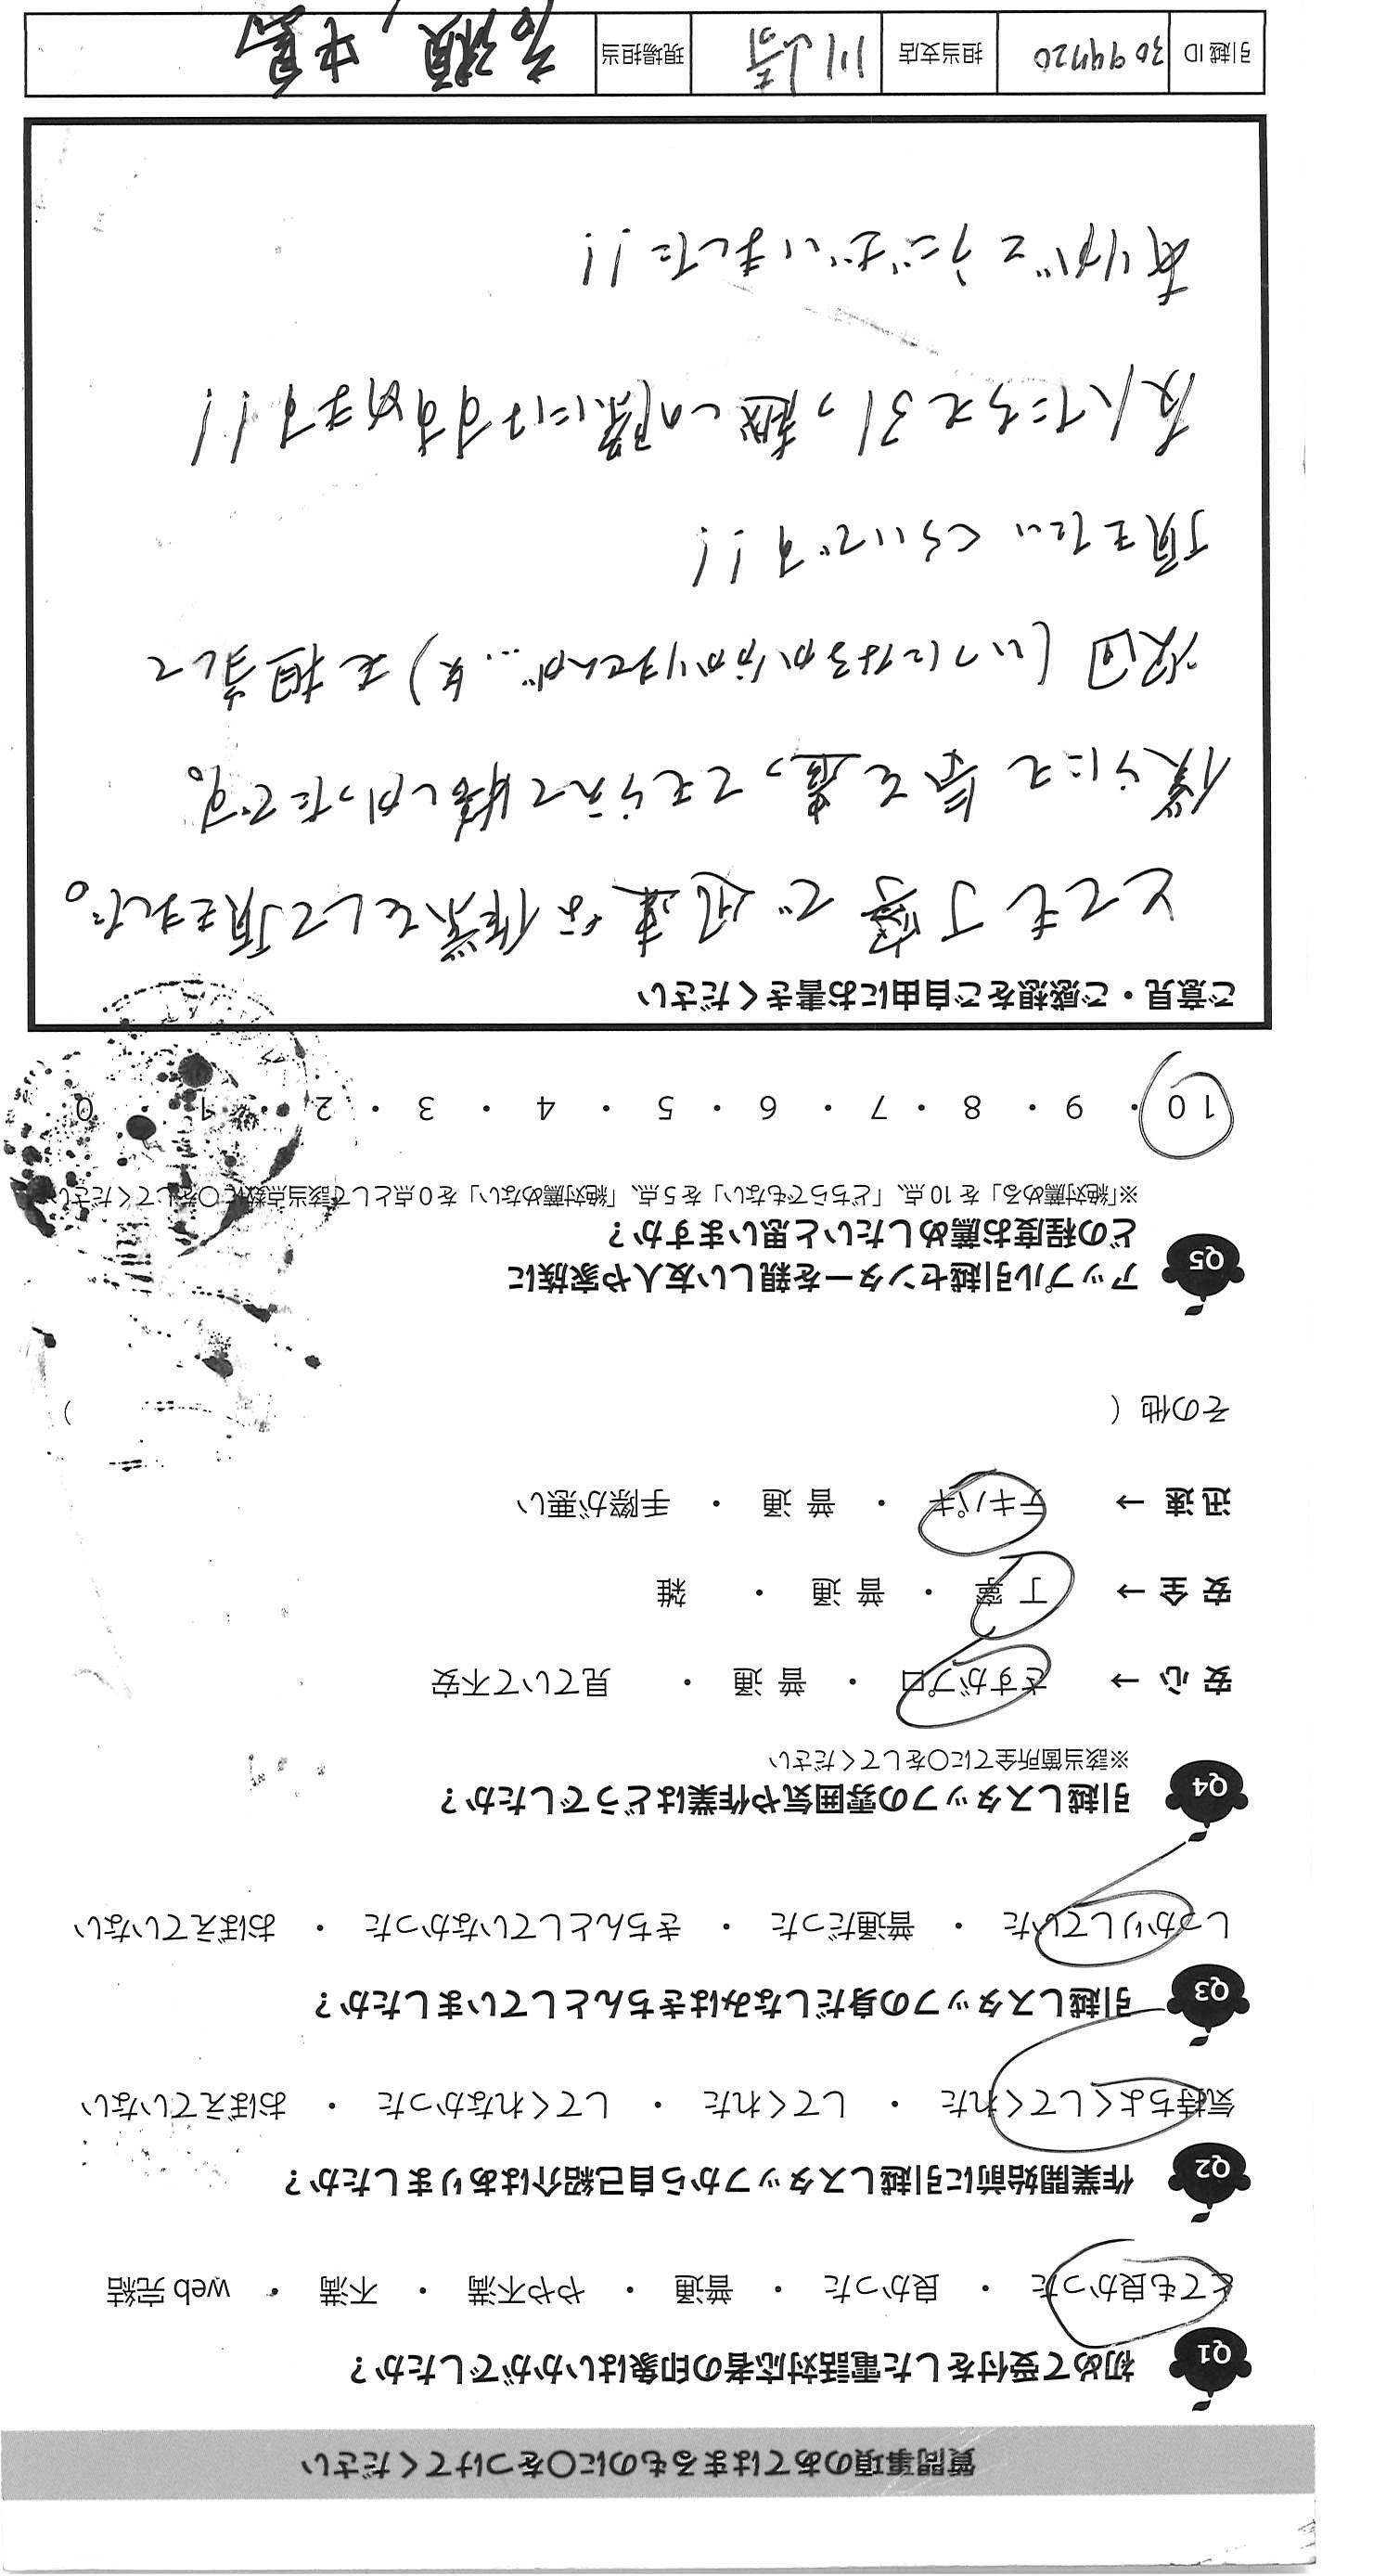 質問事項のあてはまるものに○をつけてください
Q1 初めて受付をした電話対応者の印象はいかがでしたか？
とても良かった ・ 良かった ・ 普通 ・ やや不満 ・ 不満 ・ web 完結
Q2 作業開始前に引越しスタッフから自己紹介はありましたか？
気持ちよくしてくれた ・ してくれた ・ してくれなかった ・ おぼえていない
Q3 引越しスタッフの身だしなみはきちんとしていましたか？
しっかりしていた ・ 普通だった ・ きちんとしていなかった ・ おぼえていない
Q4 引越しスタッフの雰囲気や作業はどうでしたか？
※該当箇所全てに○をしてください
安心 → さすがプロ ・ 普通 ・ 見ていて不安
安全 → 丁寧 ・ 普通 ・ 雑
迅速 → テキパキ ・ 普通 ・ 手際が悪い
その他 （ ）
Q5 アップル引越センターを親しい友人や家族に
どの程度お薦めしたいと思いますか？
※「絶対薦める」を10点、「どちらでもない」を5点、「絶対薦めない」を0点として該当点数に○をしてください
10 ・ 9 ・ 8 ・ 7 ・ 6 ・ 5 ・ 4 ・ 3 ・ 2 ・ 1 ・ 0
ご意見・ご感想をご自由にお書きください
とても丁寧で迅速な作業をして頂きました。
僕らにも気を遣ってもらえて嬉しかったです。
次回（いつになるか分かりませんが…笑）も担当して
頂きたいくらいです!!
友人たちも引っ越しの際にはすすめます!!
ありがとうございました!!
引越ID 3094720 担当支店 川崎 現場担当 高瀬、中島